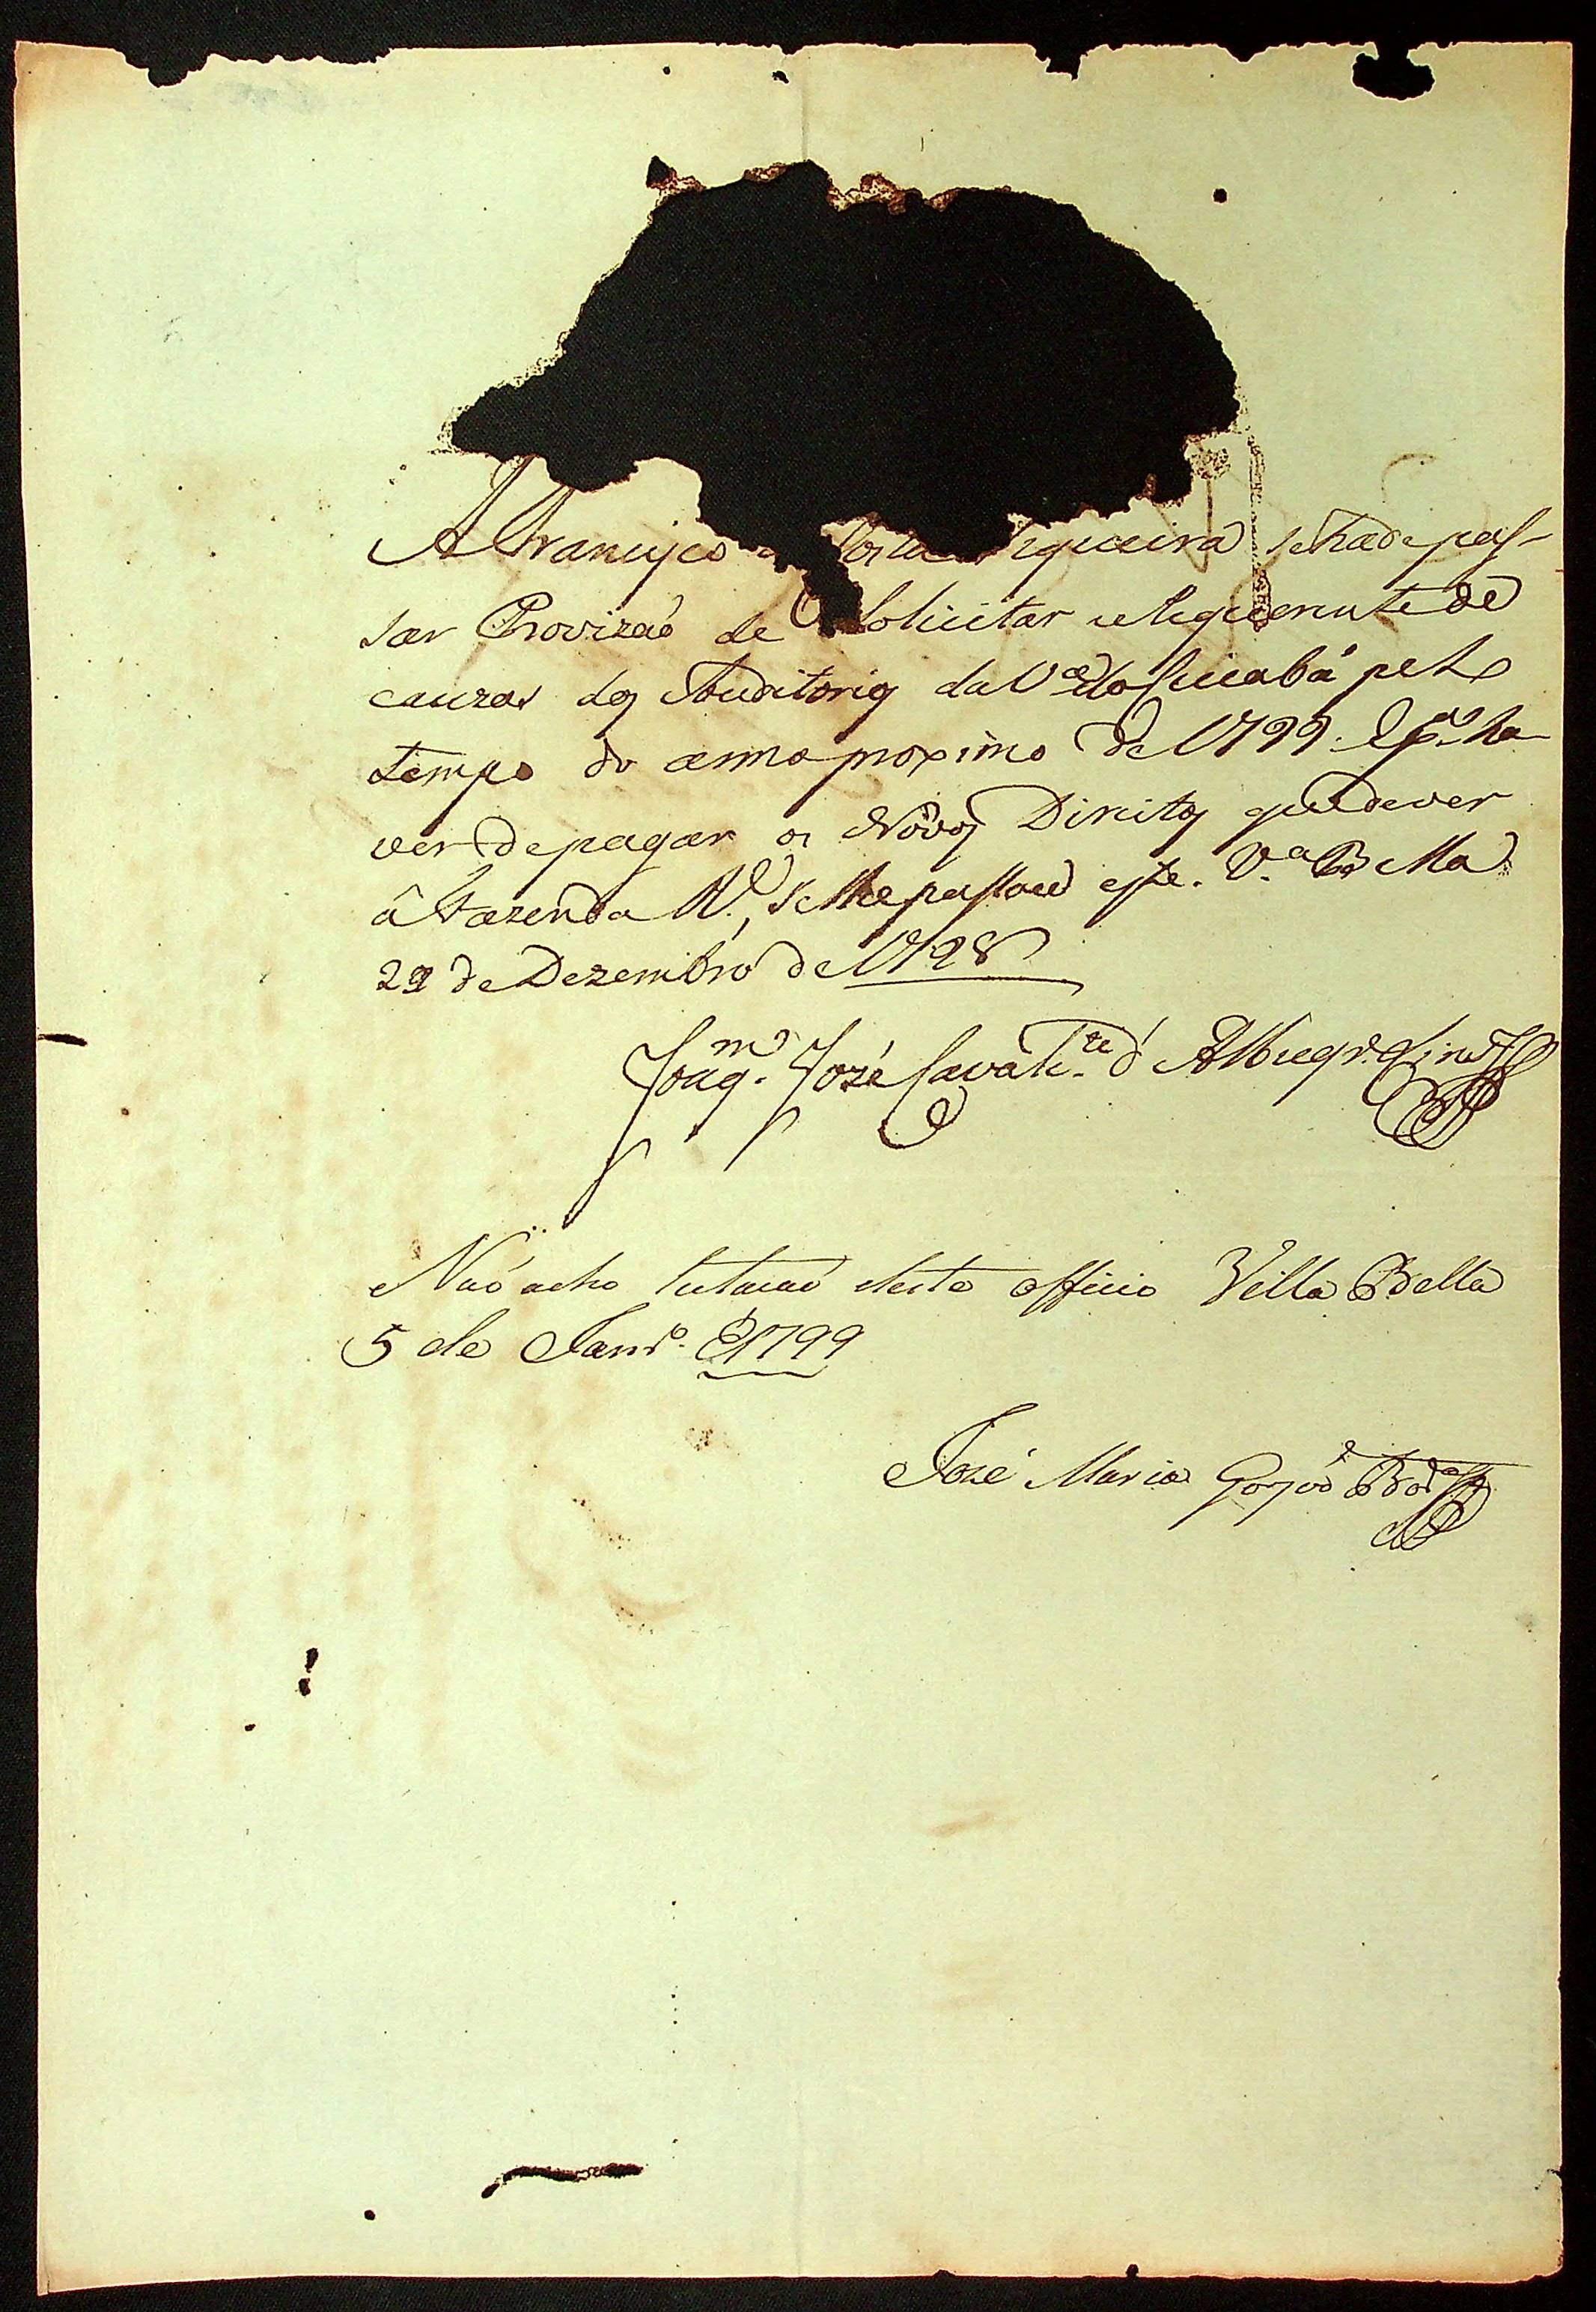 A Francisco da Costa Siqueira se ha de pas-
sar Provizaõ de Solicitar e Requerente de
cauzas dos Auditorios da V.ª do Cuiabá pelo
tempo do anno proximo de 1799. E p.ª ha-
ver de pagar os Novos Direitos que dever
á Fazenda R.l, se lhe passou este. V.ª Bella
29 de Dezembro de 1798
Joaq.m José Cavalc.te d'Albuq.e Lins
Naõ acho lutacaõ deste officio Villa Bella
5 de Janr.º de 1799
José Maria